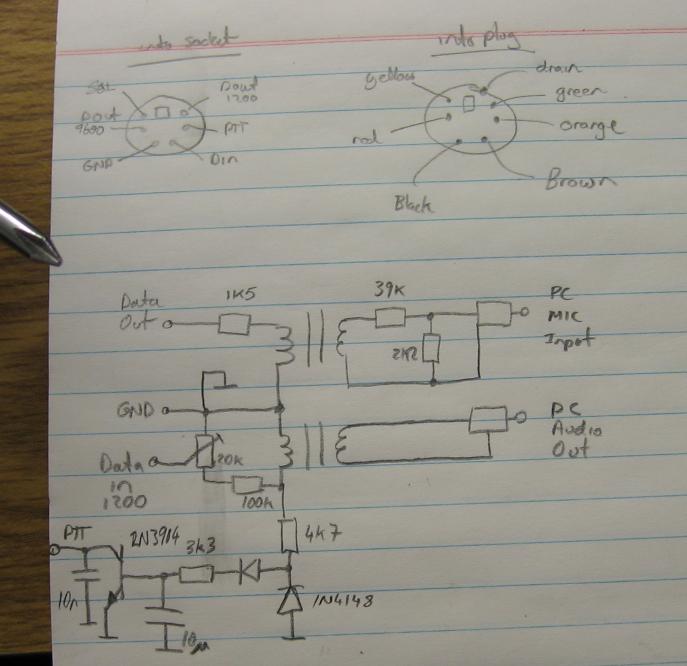 into socket
into plug
Sat
Dout
1200
Dout
9600
PTT
GND
Din
yellow
drain
green
red
orange
Black
Brown
Data
Out
1K5
39K
PC
MIC
Input
2K2
GND
PC
Audio
Out
Data
in
1200
20k
100k
PTT
2N3914
3k3
4k7
10n
10µ
1N4148